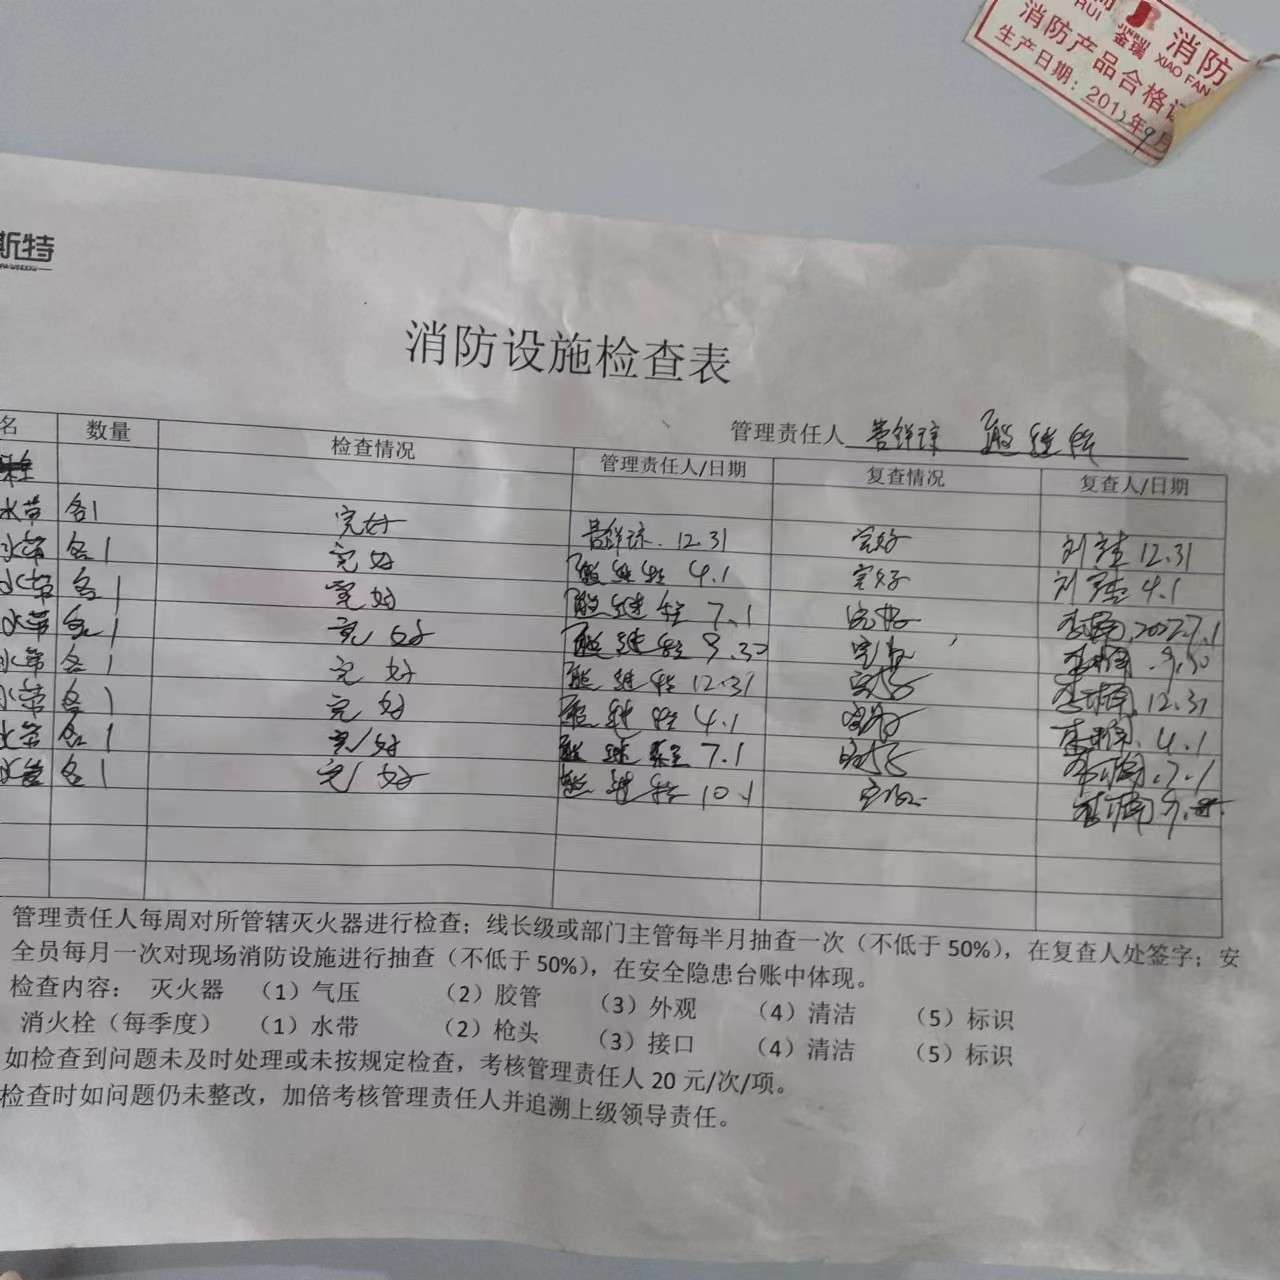 消防
RUI JINRUI XIAO FAN
金瑞
消防产品合格证
生产日期：201 年9月
斯特
消防设施检查表
管理责任人
名 数量 检查情况 管理责任人/日期 复查情况 复查人/日期
水带 各1 完好 12.31 完好 12.31
水带 各1 完好 4.1 完好 4.1
水带 各1 完好 7.1 完好 2022.7.1
水带 各1 完好 9.30 完好 9.30
水带 各1 完好 12.31 完好 12.31
水带 各1 完好 4.1 完好 4.1
水带 各1 完好 7.1 完好 7.1
水带 各1 完好 10.1 完好 9.
管理责任人每周对所管辖灭火器进行检查；线长级或部门主管每半月抽查一次（不低于50%），在复查人处签字；安
全员每月一次对现场消防设施进行抽查（不低于50%），在安全隐患台账中体现。
检查内容： 灭火器 （1）气压 （2）胶管 （3）外观 （4）清洁 （5）标识
消火栓（每季度） （1）水带 （2）枪头 （3）接口 （4）清洁 （5）标识
如检查到问题未及时处理或未按规定检查，考核管理责任人20元/次/项。
检查时如问题仍未整改，加倍考核管理责任人并追溯上级领导责任。